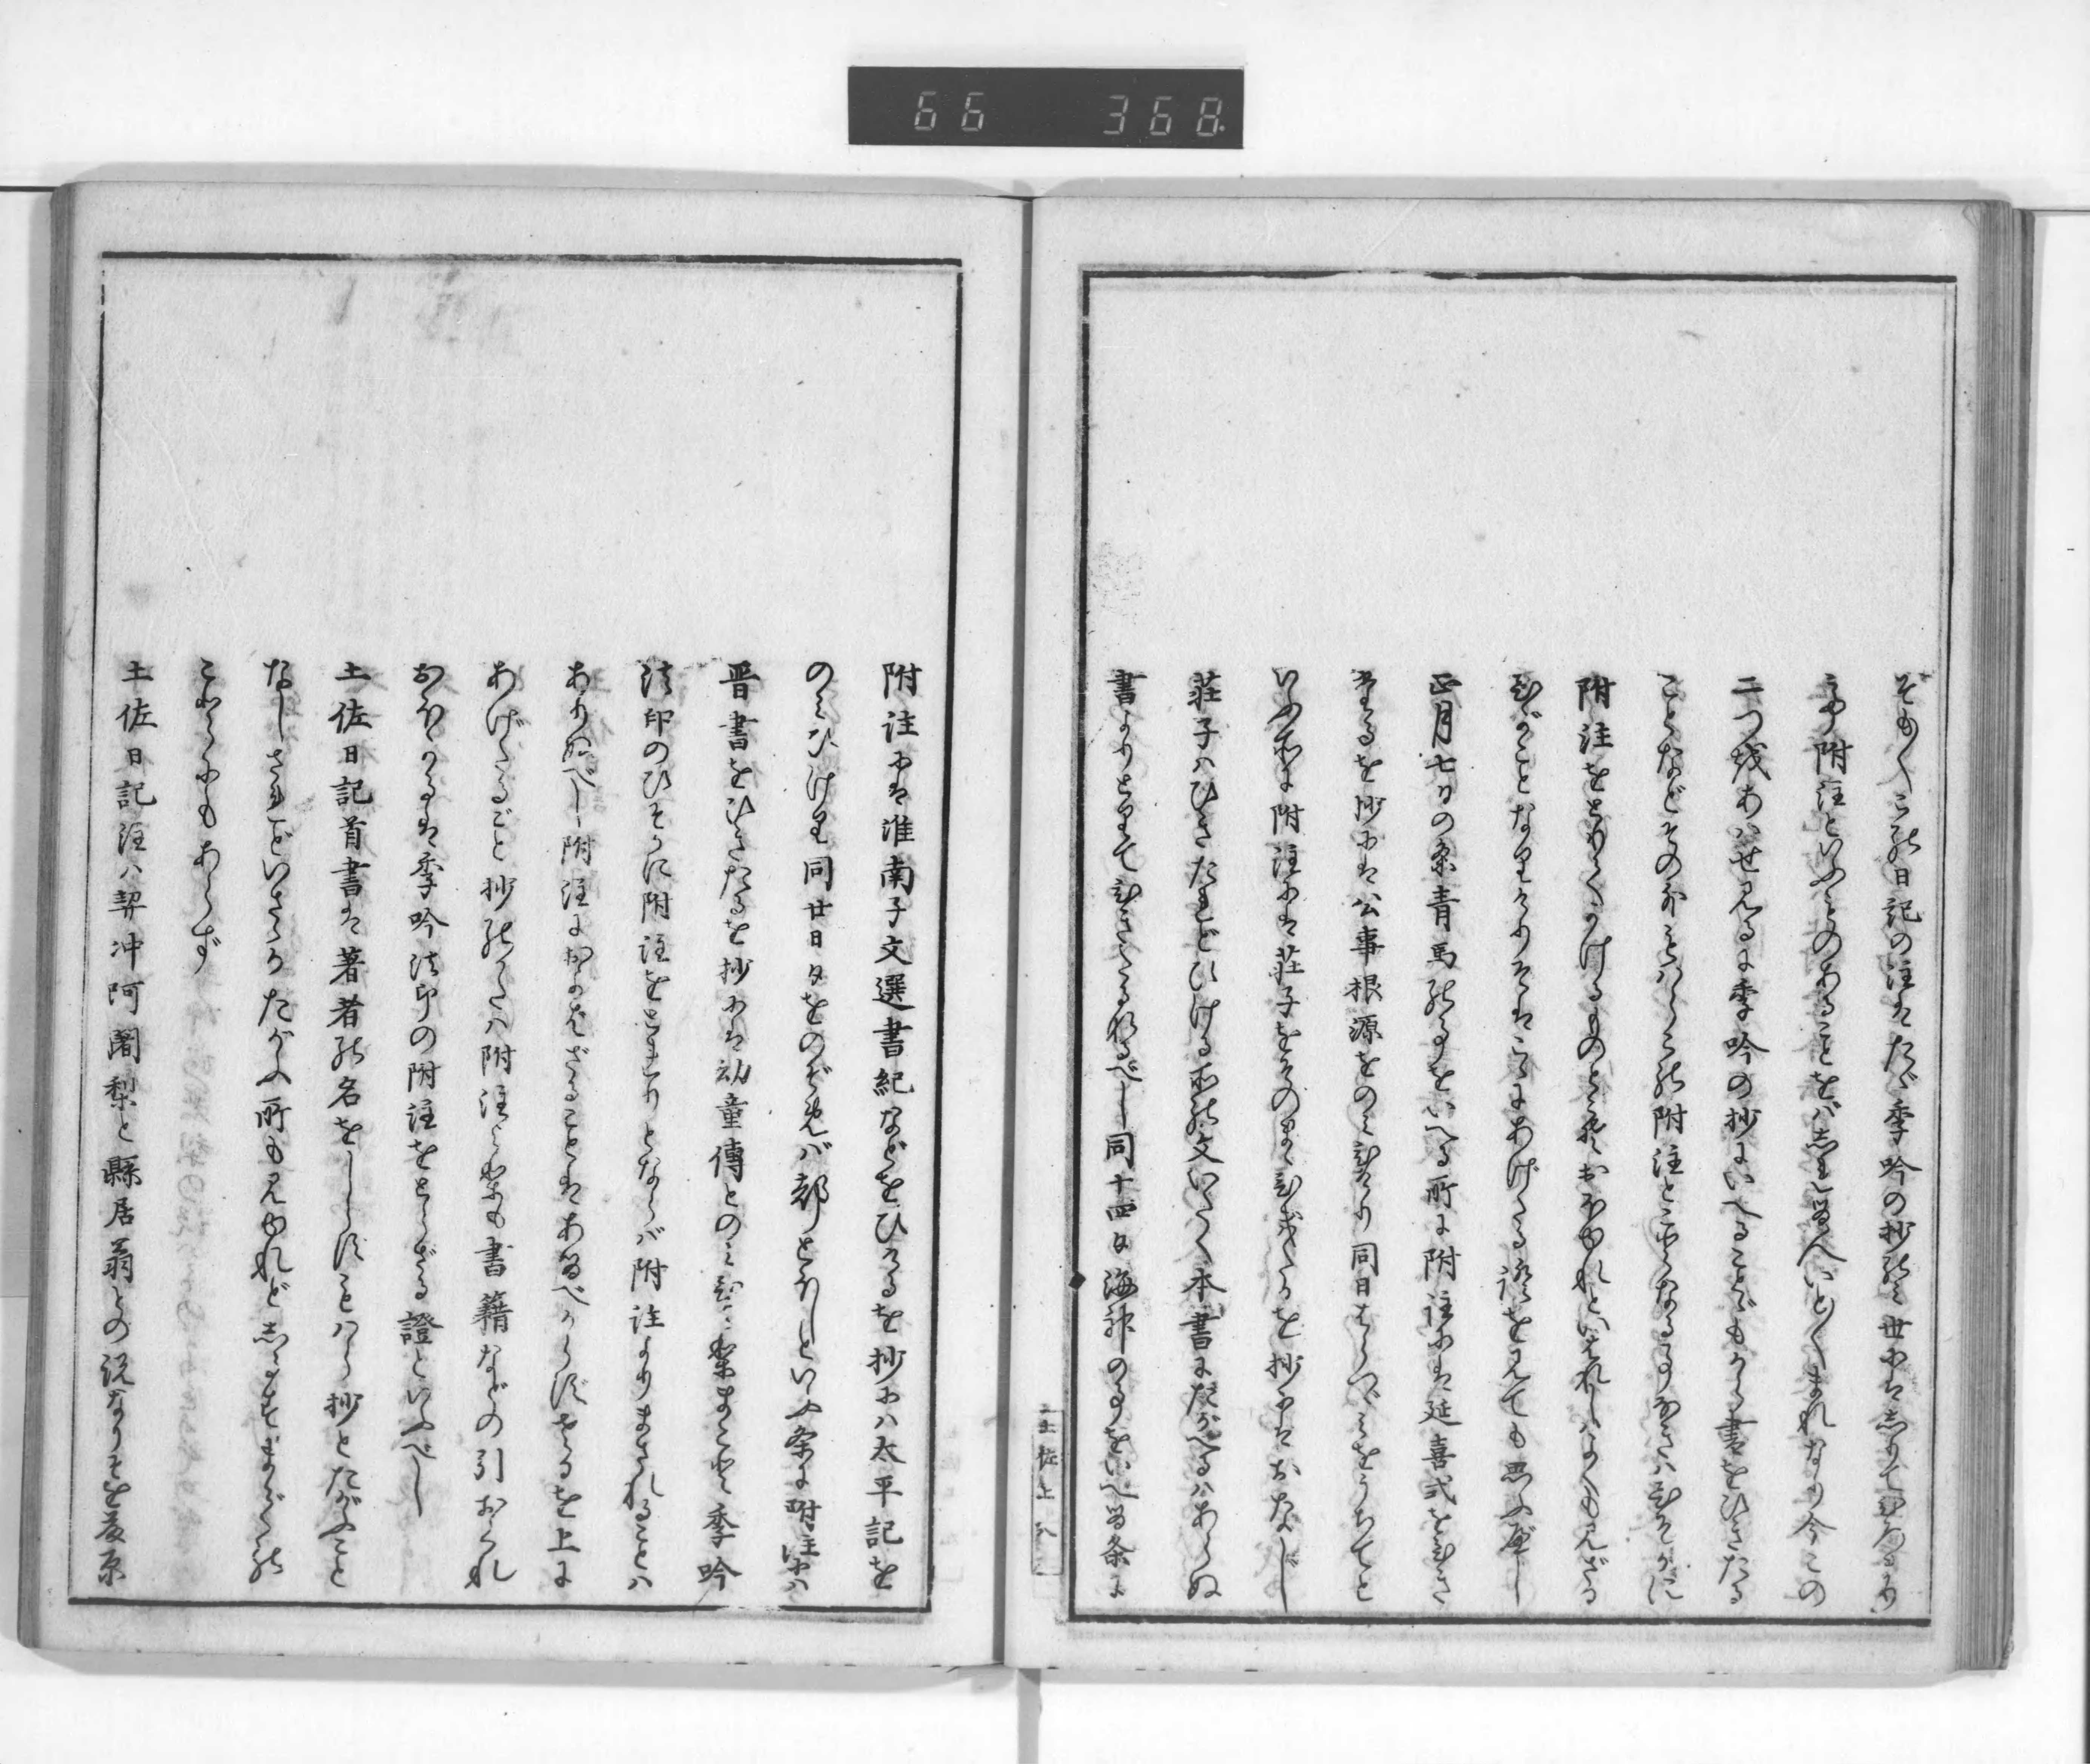 66 368
そも〳〵この日記の注はたゞ季吟の抄のみ世にはしりてひろまり
附注といふものあることをばしれる人いと〳〵まれなり今この
二つをあはせ見るに季吟の抄にいへることゞもかく書をひきたる
ことなどその外も附注とことなる事なきはひそかに
附注をとりてかけるものとぞおぼゆれといはれしはよくも見ざる
ひがことなりけりそはこゝにあげたる證を見ても思ふべし
正月七日の条青馬の事をいへる所に附注には延喜式をひき
たるを抄には公事根源をのみひけり同日わりごをうちてと
いふ所に附注には荘子をそのまゝひきたるを抄にはおなじ
荘子はひきたれどひける所の文いたく本書にたがへるはあらぬ
書よりとりてひきたるなるべし同十四日海神の事をいへる条に
土佐上 八
附注には淮南子文選書紀などをひけるを抄には太平記を
のみひけり同廿日夕をのぞめば都とほしといふ条に附注には
晋書をひきたるを抄には幼童傳とのみひけりまことに季吟
法印のひそかに附注をとれりとならば附注よりまされることは
ありぬべし附注におよばざることはあるべからずさるを上に
あげたるごと抄のかたは附注よりも書籍などの引おくれ
おほかるは季吟法印の附注をとらざる證といふべし
土佐日記首書は著者の名をしらずこはかの抄とたがふこと
なしされどいさゝかたがふ所も見ゆれどしるすまでの
ことにもあらず
土佐日記注ハ契沖阿闍梨と縣居翁との説なりそを藤原